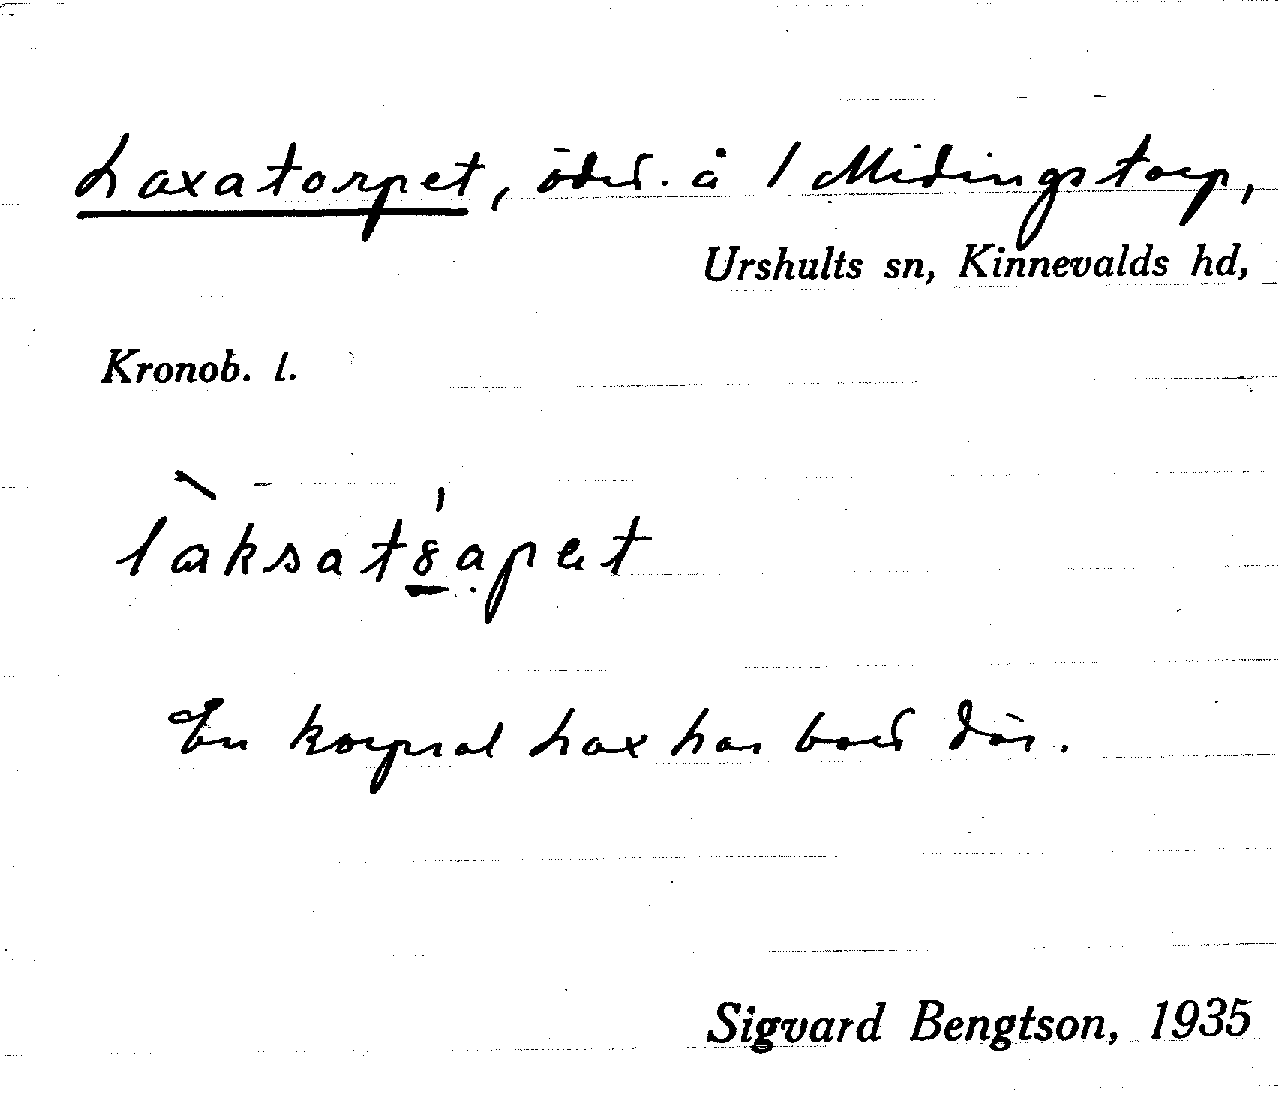 Laxatorpet, ödel. å 1 Midingstorp,
Urshults sn, Kinnevalds hd,
Kronob. l.
En korpral Lax har bott där.
Sigvard Bengtson, 1935